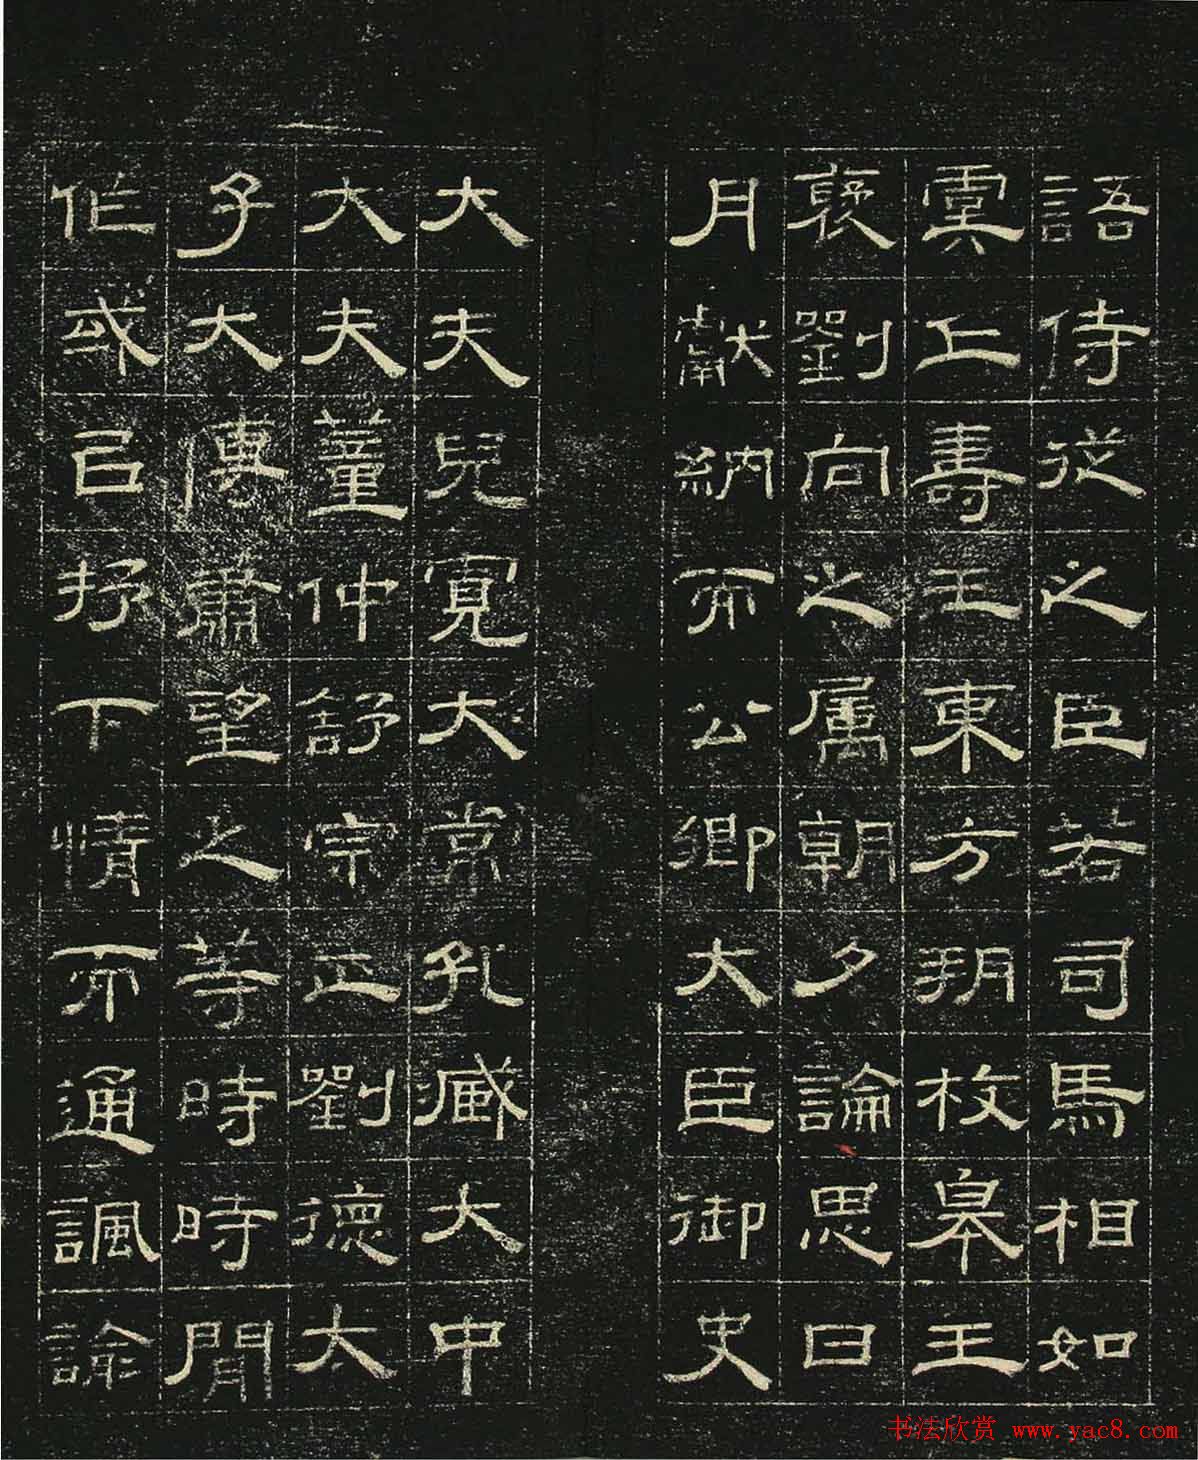 語侍從之臣若司馬相如
虞丘壽王東方朔枚皋王
褒劉向之属朝夕論思日
月獻納而公卿大臣御史
大夫兒寬大常孔臧大中
大夫董仲舒宗正劉德大
子大傅蕭望之等時時閒
作或以抒下情而通諷諭
书法欣赏 www.yac8.com